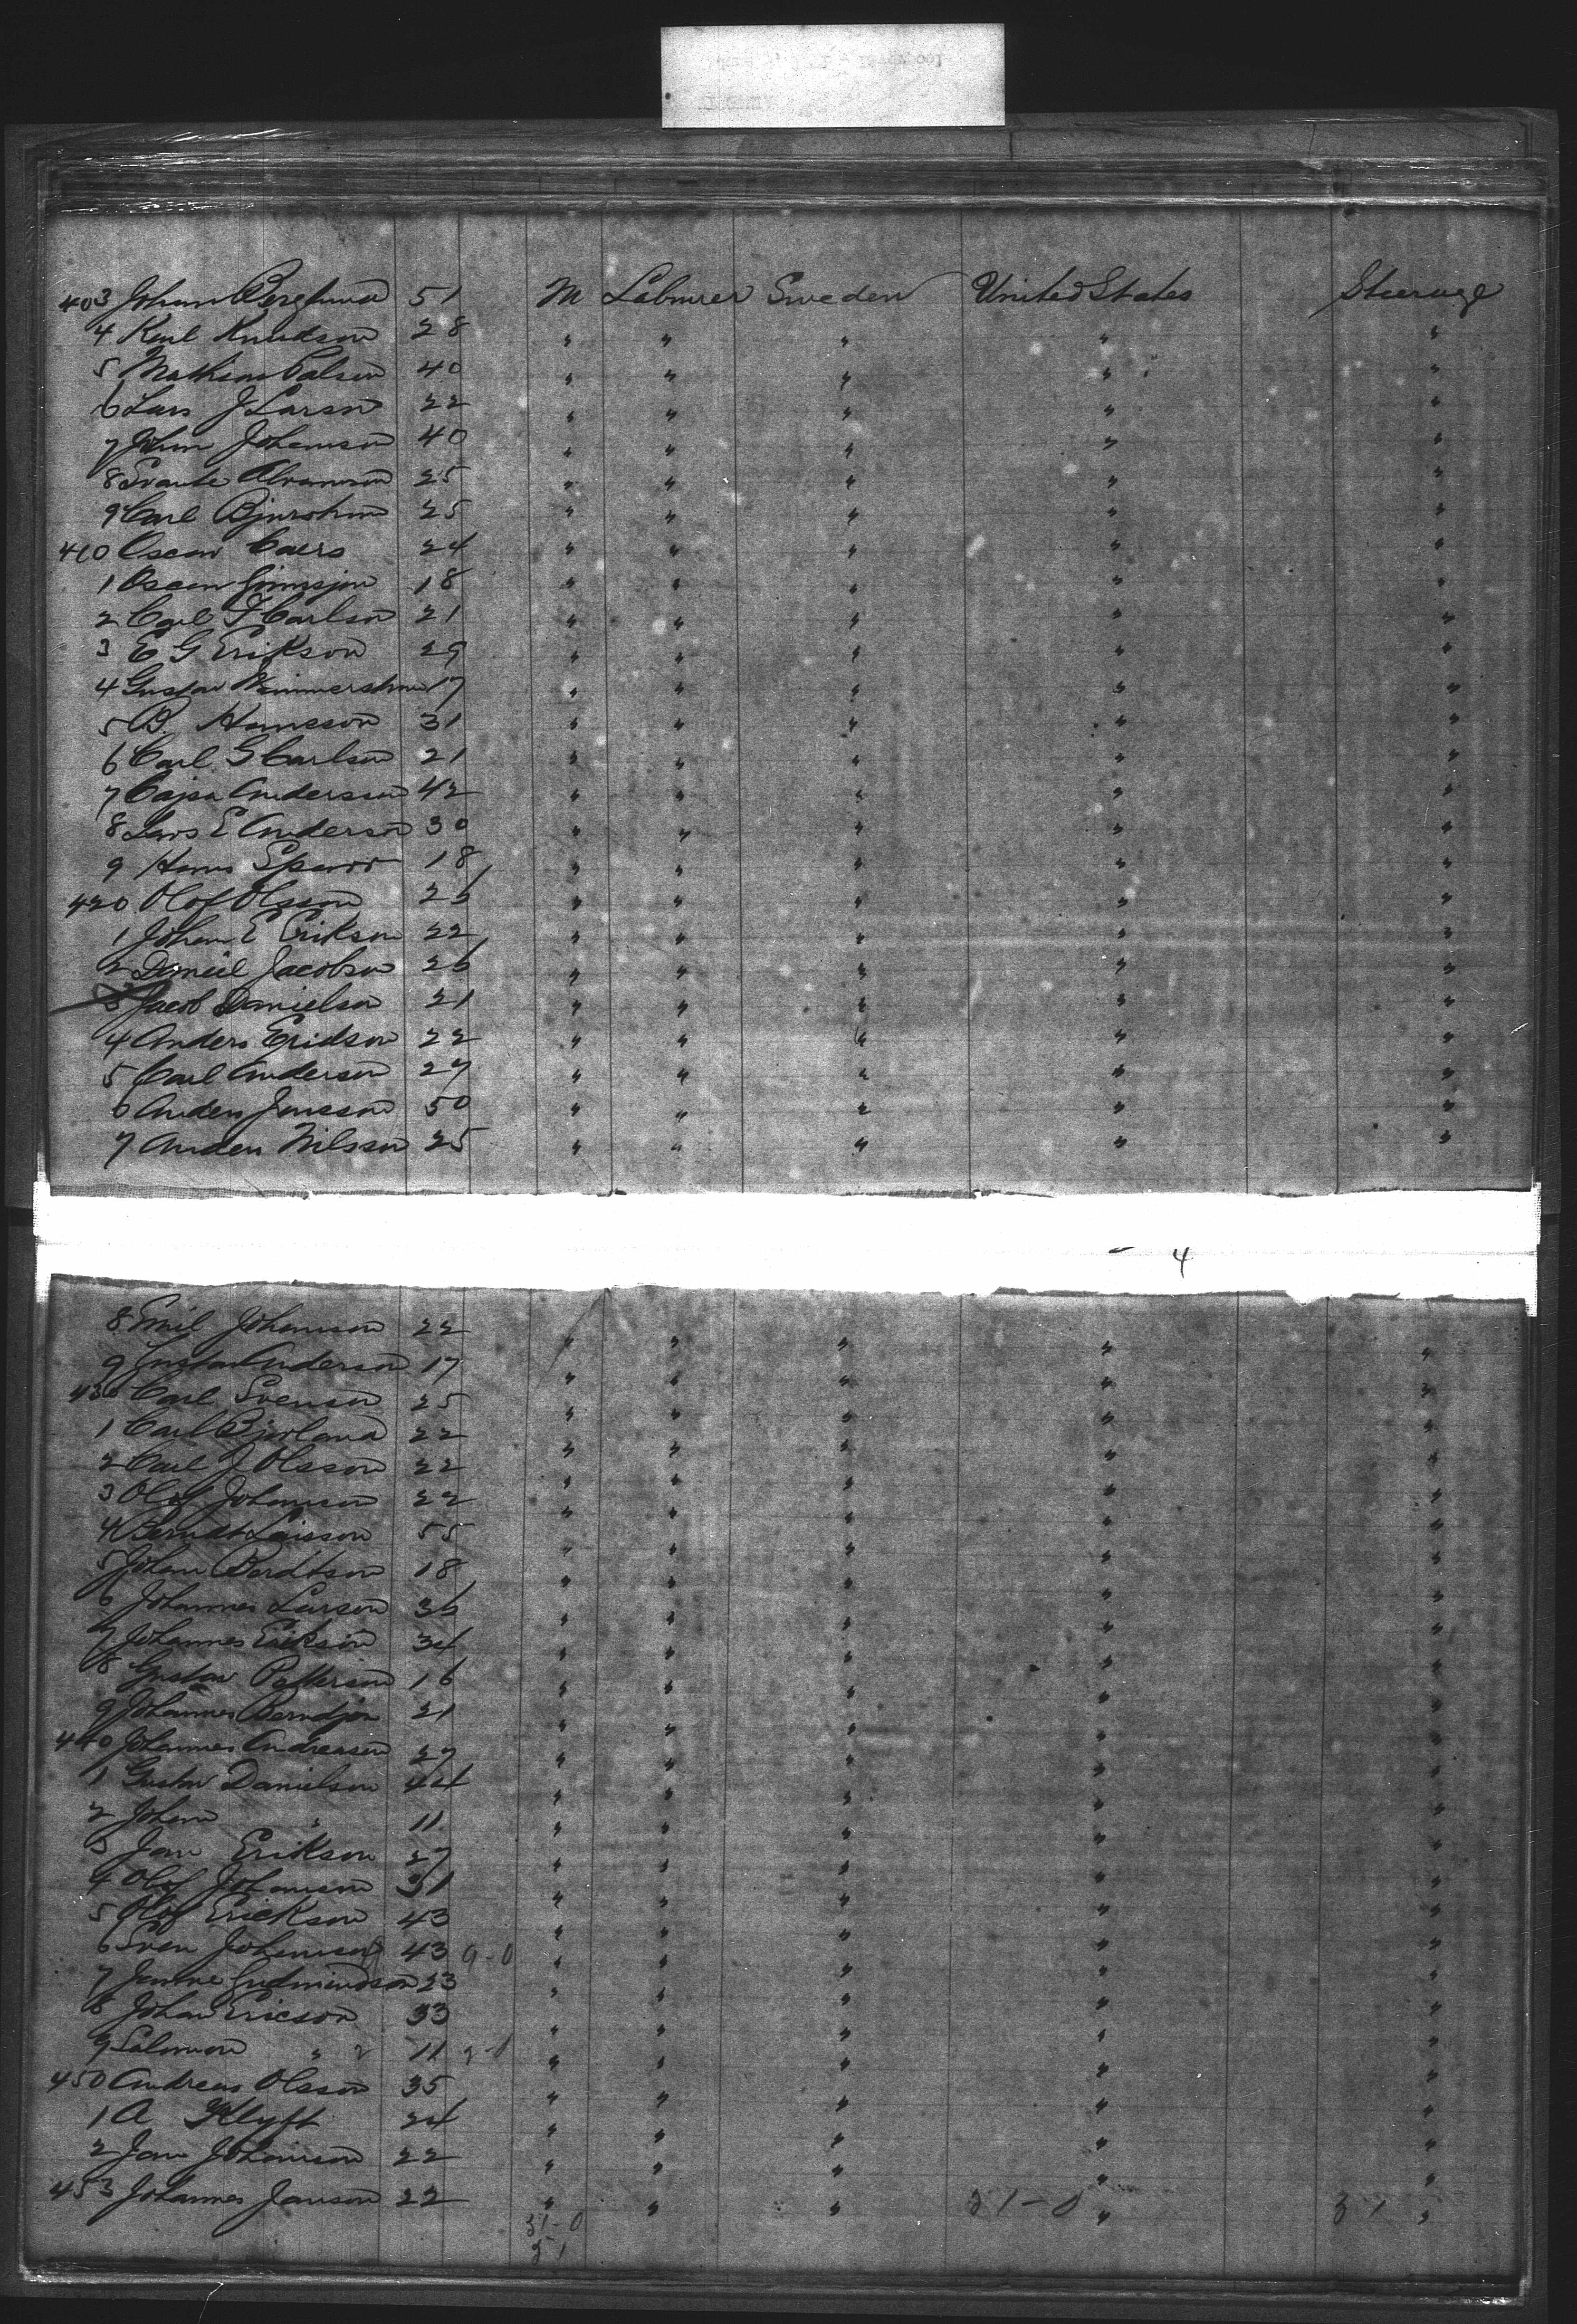 403 Johan Berglund 51 M Labourer Sweden United States Steerage
4 Karl Knudson 28 " " " " "
5 Mathias Palson 40 " " " " "
6 Lars J Larson 22 " " " " "
7 John Johanson 40 " " " " "
8 Svante Abramson 25 " " " " "
9 Carl 25 " " " " "
410 Oscar 24 " " " " "
1 Oscar 18 " " " " "
2 Carl F Carlson 21 " " " " "
3 E G Erikson 29 " " " " "
4 Gustav 17 " " " " "
5 B. Hanson 31 " " " " "
6 Carl G Carlson 21 " " " " "
7 Cajsa Anderson 42 " " " " "
8 Lars E Anderson 30 " " " " "
9 Hans Sparr 18 " " " " "
420 Olof Olsson 26 " " " " "
1 Johan E Erikson 22 " " " " "
2 Daniel Jacobson 26 " " " " "
3 Jacob Danielson 21 " " " " "
4 Anders Eridson 22 " " " " "
5 Carl Anderson 27 " " " " "
6 Anders Jonsson 50 " " " " "
7 Anders Nilsson 25 " " " " "
4
8 Emil Johanson 22 " " " " "
9 Gustav Anderson 17 " " " " "
430 Carl Svenson 25 " " " " "
1 Carl Bjorland 22 " " " " "
2 Carl J Olsson 22 " " " " "
3 Olof Johanson 22 " " " " "
4 Berndt Larsson 55 " " " " "
5 Johan Berdtson 18 " " " " "
6 Johannes Larson 36 " " " " "
7 Johannes Erikson 34 " " " " "
8 Gustav Patterson 16 " " " " "
9 Johannes 21 " " " " "
440 Johannes Andreasen 27 " " " " "
1 Gustav Danielson 44 " " " " "
2 Johan " 11 " " " " "
3 Jan Erikson 27 " " " " "
4 Olof Johanson 31 " " " " "
5 Olof Erickson 43 " " " " "
6 Sven Johanson 43 9-0 " " " " "
7 Janne Gudmundson 23 " " " " "
8 Johan Ericson 33 " " " " "
9 Salomon " 11 " " " " "
450 Andreas Olsson 35 " " " " "
1 A Klyft 24 " " " " "
2 Jan Johanson 22 " " " " "
453 Johannes Janson 22 " " " " "
51-0
51